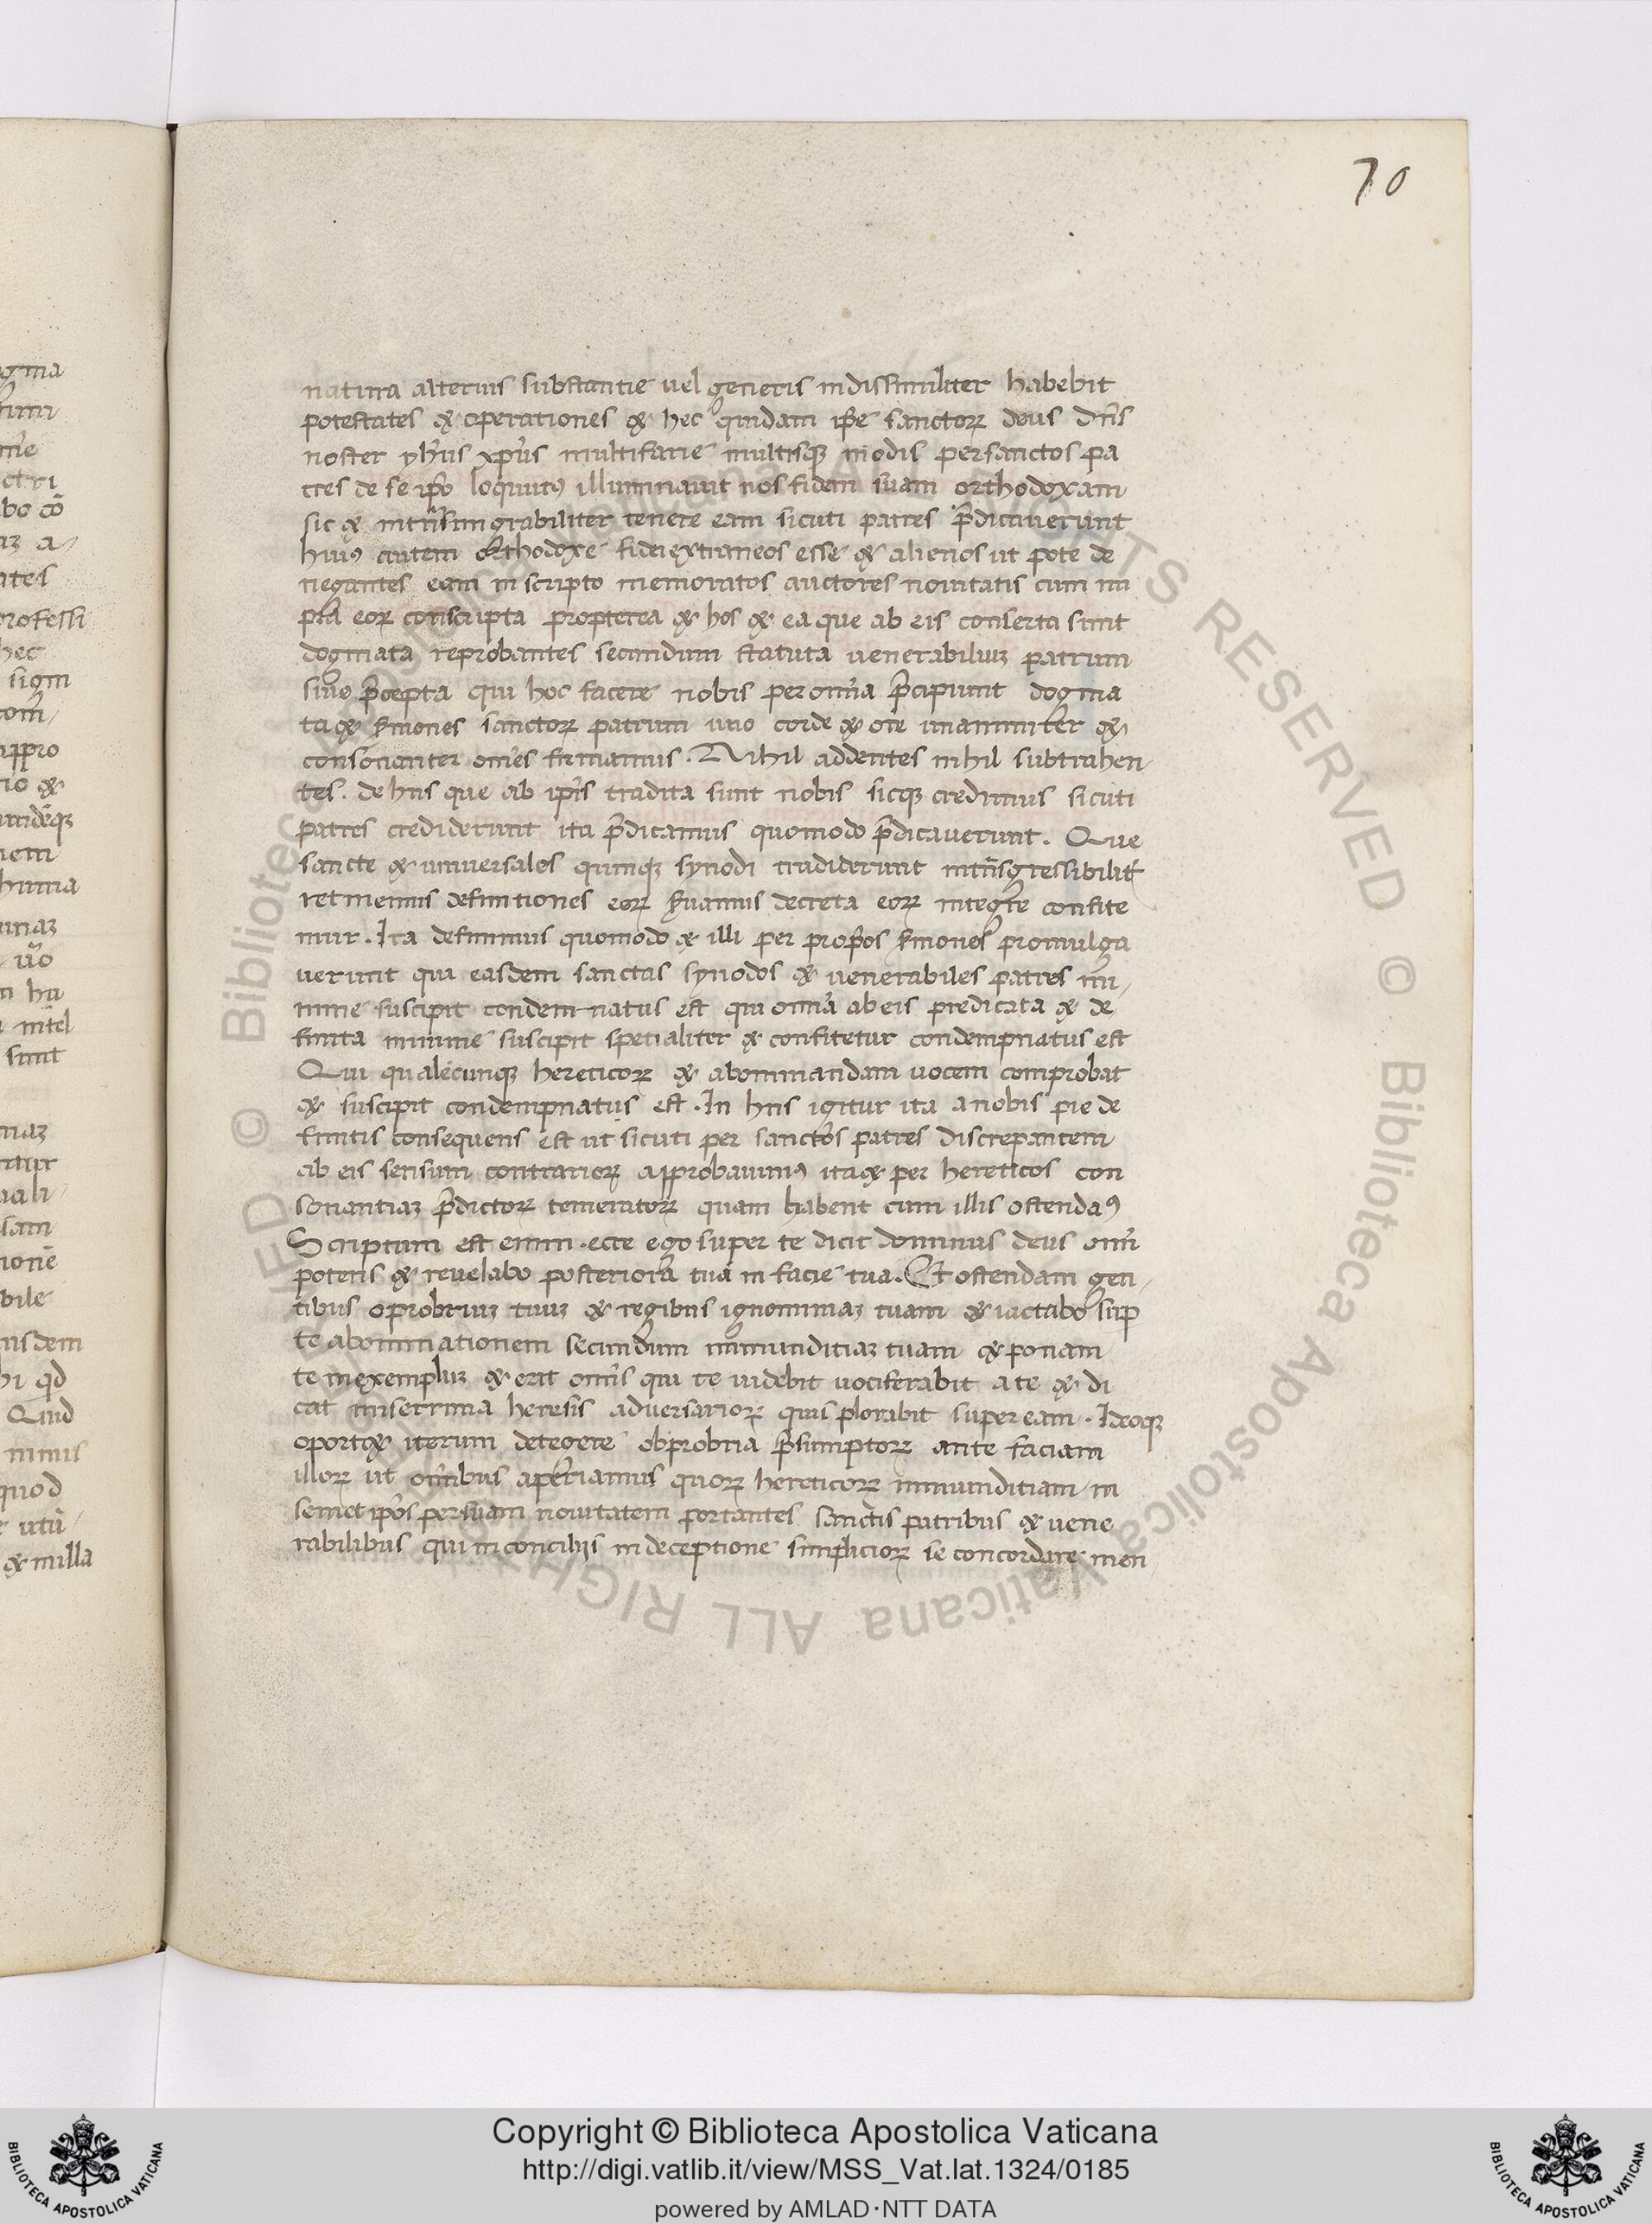 70
natura alterius substantie uel generis indissimiliter habebit
potestates & operationes & hec quidam ip̄e sanctoꝝ deus dn̄s
noster yhus xp̄us multifarie multisqꝫ modis per sanctos pa
tres de se ip̄o loquutꝰ illuminauit nos fidem suam orthodoxam
sic & tenere eam sicuti patres p̄dicauerunt
huiꝰ autem orthodoxe fidei extraneos esse & alienos ut pote de
negantes eam in scripto memoratos auctores nouitatis cum im
pia eoꝝ conscripta propterea & hos & ea que ab eis conserta sunt
dogmata reprobantes secundum statuta uenerabiliuꝫ patrum
siue p̄cepta qui hoc facere nobis per om̄ia p̄cipiunt dogma
ta & s̄mones sanctoꝝ patrum uno corde & ore unanimiter &
consonanter om̄es firmamus. Nihil addentes nihil subtrahen
tes. de hiis que ab ip̄is tradita sunt nobis sicqꝫ credimus sicuti
patres crediderunt ita p̄dicamus quomodo p̄dicauerunt. Que
sancte & uniuersales quinqꝫ synodi tradiderunt int̄nsgressibilit̄
retinemus definitiones eoꝝ s̄uamus decreta eoꝝ integre confite
mur. Ita definimus quomodo & illi per prop̄os s̄mones promulga
uerunt qui easdem sanctas synodos & uenerabiles patres mi
nime suscipit condemnatus est qui om̄ia ab eis predicata & de
finita minime suscipit spetialiter & confitetur condempnatus est
Qui qualecunqꝫ hereticoꝝ & abominandam uocem comprobat
& suscipit condempnatus est. In hiis igitur ita a nobis pie de
finitis consequens est ut sicuti per sanctos patres discrepantem
ab eis sensum contrarioꝝ approbauimꝰ ita & per hereticos con
sonantiaꝫ p̄dictoꝝ temeratoꝝ quam habent cum illis ostendaꝰ
Scriptum est enim. ecce ego super te dicit dominus deus om̄i
potens & reuelabo posteriora tua in facie tua. Et ostendam gen
tibus oprobriuꝫ tuuꝫ & regibus ignominiaꝫ tuam & iactabo suꝑ
te abominationem secundum inmunditiaꝫ tuam & ponam
te in exempluꝫ & erit om̄is qui te uidebit uociferabit a te & di
cat miserrima heresis aduersarioꝝ quis plorabit super eam. Ideoqꝫ
oport& iterum detegere obprobria p̄sumptoꝝ ante faciam
illoꝝ ut om̄ibus aperiamus quoꝝ hereticoꝝ inmunditiam in
semet ip̄os per suam nouitatem portantes sanctis patribus & uene
rabilibus qui in conciliis in deceptione simplicioꝝ se concordare men
Copyright © Biblioteca Apostolica Vaticana
http://digi.vatlib.it/view/MSS_Vat.lat.1324/0185
powered by AMLAD·NTT DATA
BIBLIOTECA APOSTOLICA VATICANA
BIBLIOTECA APOSTOLICA VATICANA